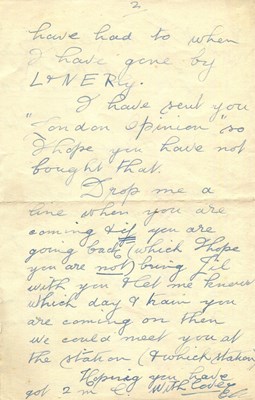 2.
have had to when
I have gone by
L&NERly.
I have sent you
"London Opinion" so
I hope you have not
bought that.
Drop me a
line when you are
coming & if you are
going back (which I hope
you are not) bring
with you & let me know
which day & train you
are coming on then
we could meet you at
the station (& which station)
Hoping you have
got 2 m With love